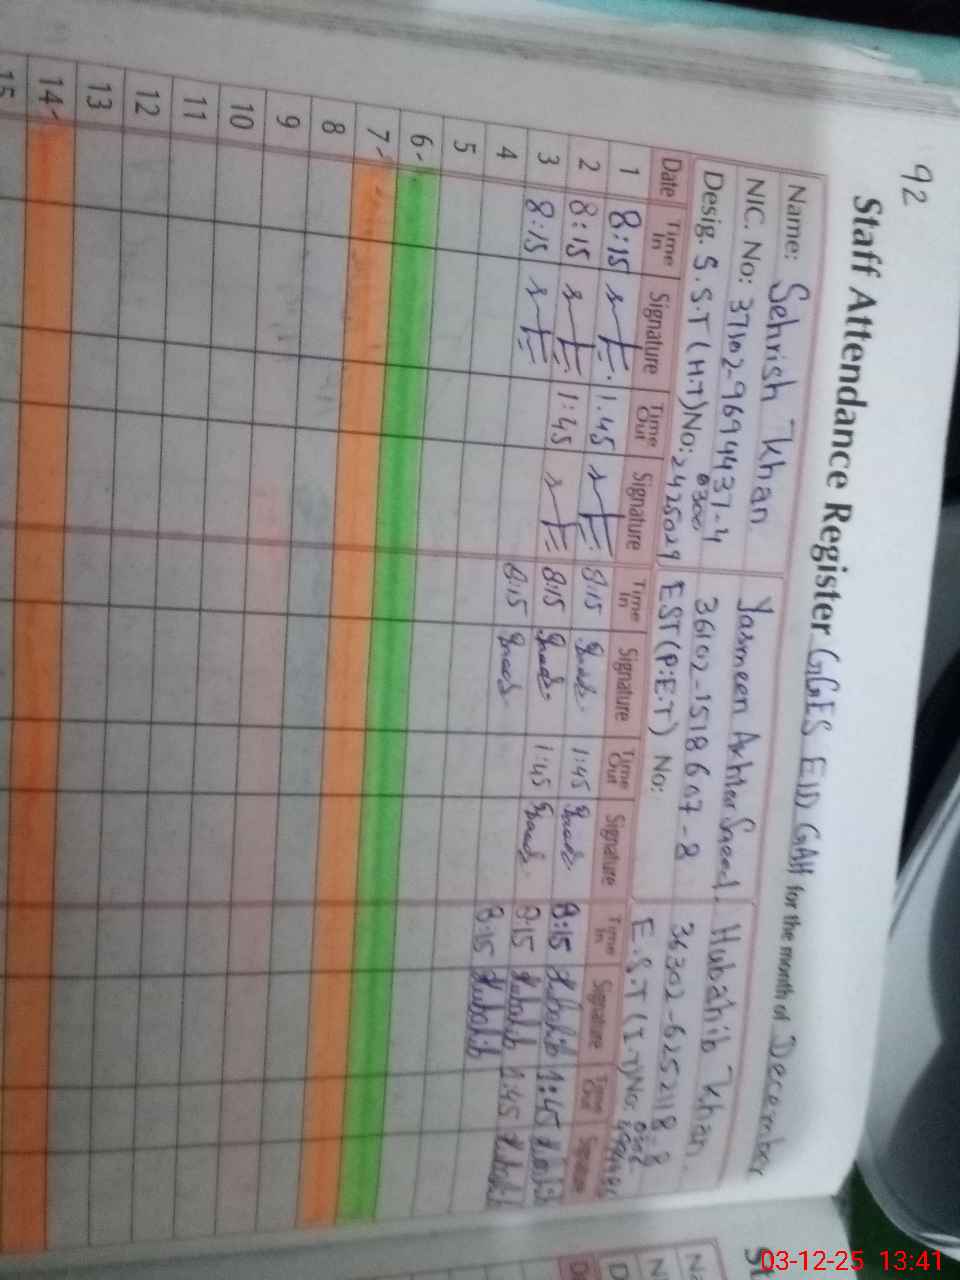 92
Staff Attendance Register GGES EID GAH for the month of December
Name: Sehrish Khan Yasmeen Akhter Saeed. Hubahib Khan.
NIC. No: 37102-9694437-4 36102-1518607-8 36302-6252118-8
Desig. S.S.T (H.T) No: 0300 2425029 EST (P.E.T) No: E.S.T (I-T) No:
Date Time In Signature Time Out Signature Time In Signature Time Out Signature Time In Signature Time Out Signature
1 8:15 1.45 8:15 1:45 8:15 Hubahib 1:45 Hubahib
2 8:15 1:45 8:15 1:45 8:15 Hubahib 1:45 Hubahib
3 8:15 8:15 8:15 Hubahib
4
5
6-
7-
8
9
10
11
12
13
14-
15
03-12-25 13:41